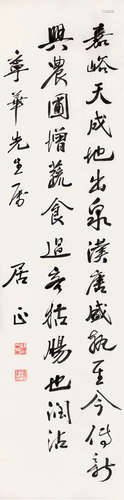 嘉峪天成地出泉漢唐盛執至今傳新
興農圃增蔬食過客枯腸也潤沾
寧華先生屬
居正